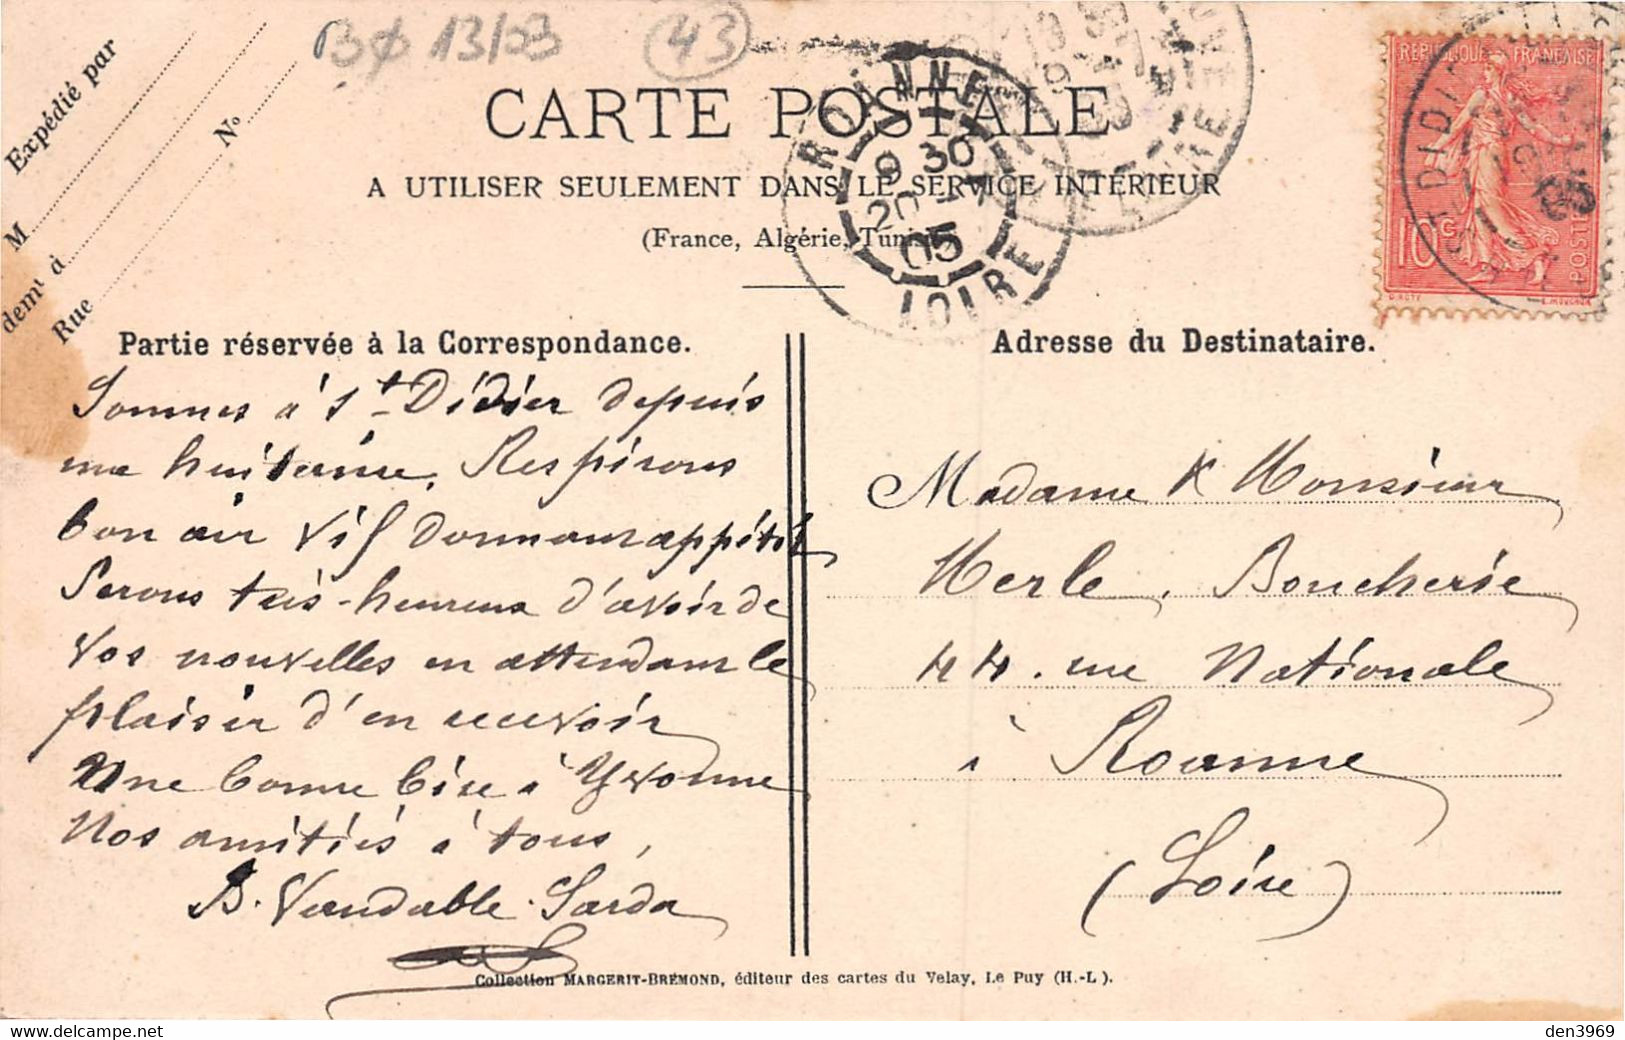 BØ 13/03
43
Expédié par
M
demt à
Rue
No
CARTE POSTALE
A UTILISER SEULEMENT DANS LE SERVICE INTÉRIEUR
(France, Algérie, Tunisie)
ROANNE
9 30
20
05
LOIRE
REPUBLIQUE FRANÇAISE
10 c
POSTES
ST DIDIER
Partie réservée à la Correspondance.
Sommes à St Didier depuis
une huitaine. Respirons
bon air vif donnant appétit
Serons très-heureux d'avoir de
Vos nouvelles en attendant le
plaisir d'en recevoir
Une bonne bise à Yvonne
Nos amitiés à tous,
B. Vandable-Sarda
Adresse du Destinataire.
Madame & Monsieur
Merle, Boucherie
44. rue Nationale
à Roanne
(Loire)
Collection MARGERIT-BREMOND, éditeur des cartes du Velay, Le Puy (H.-L).
den3969